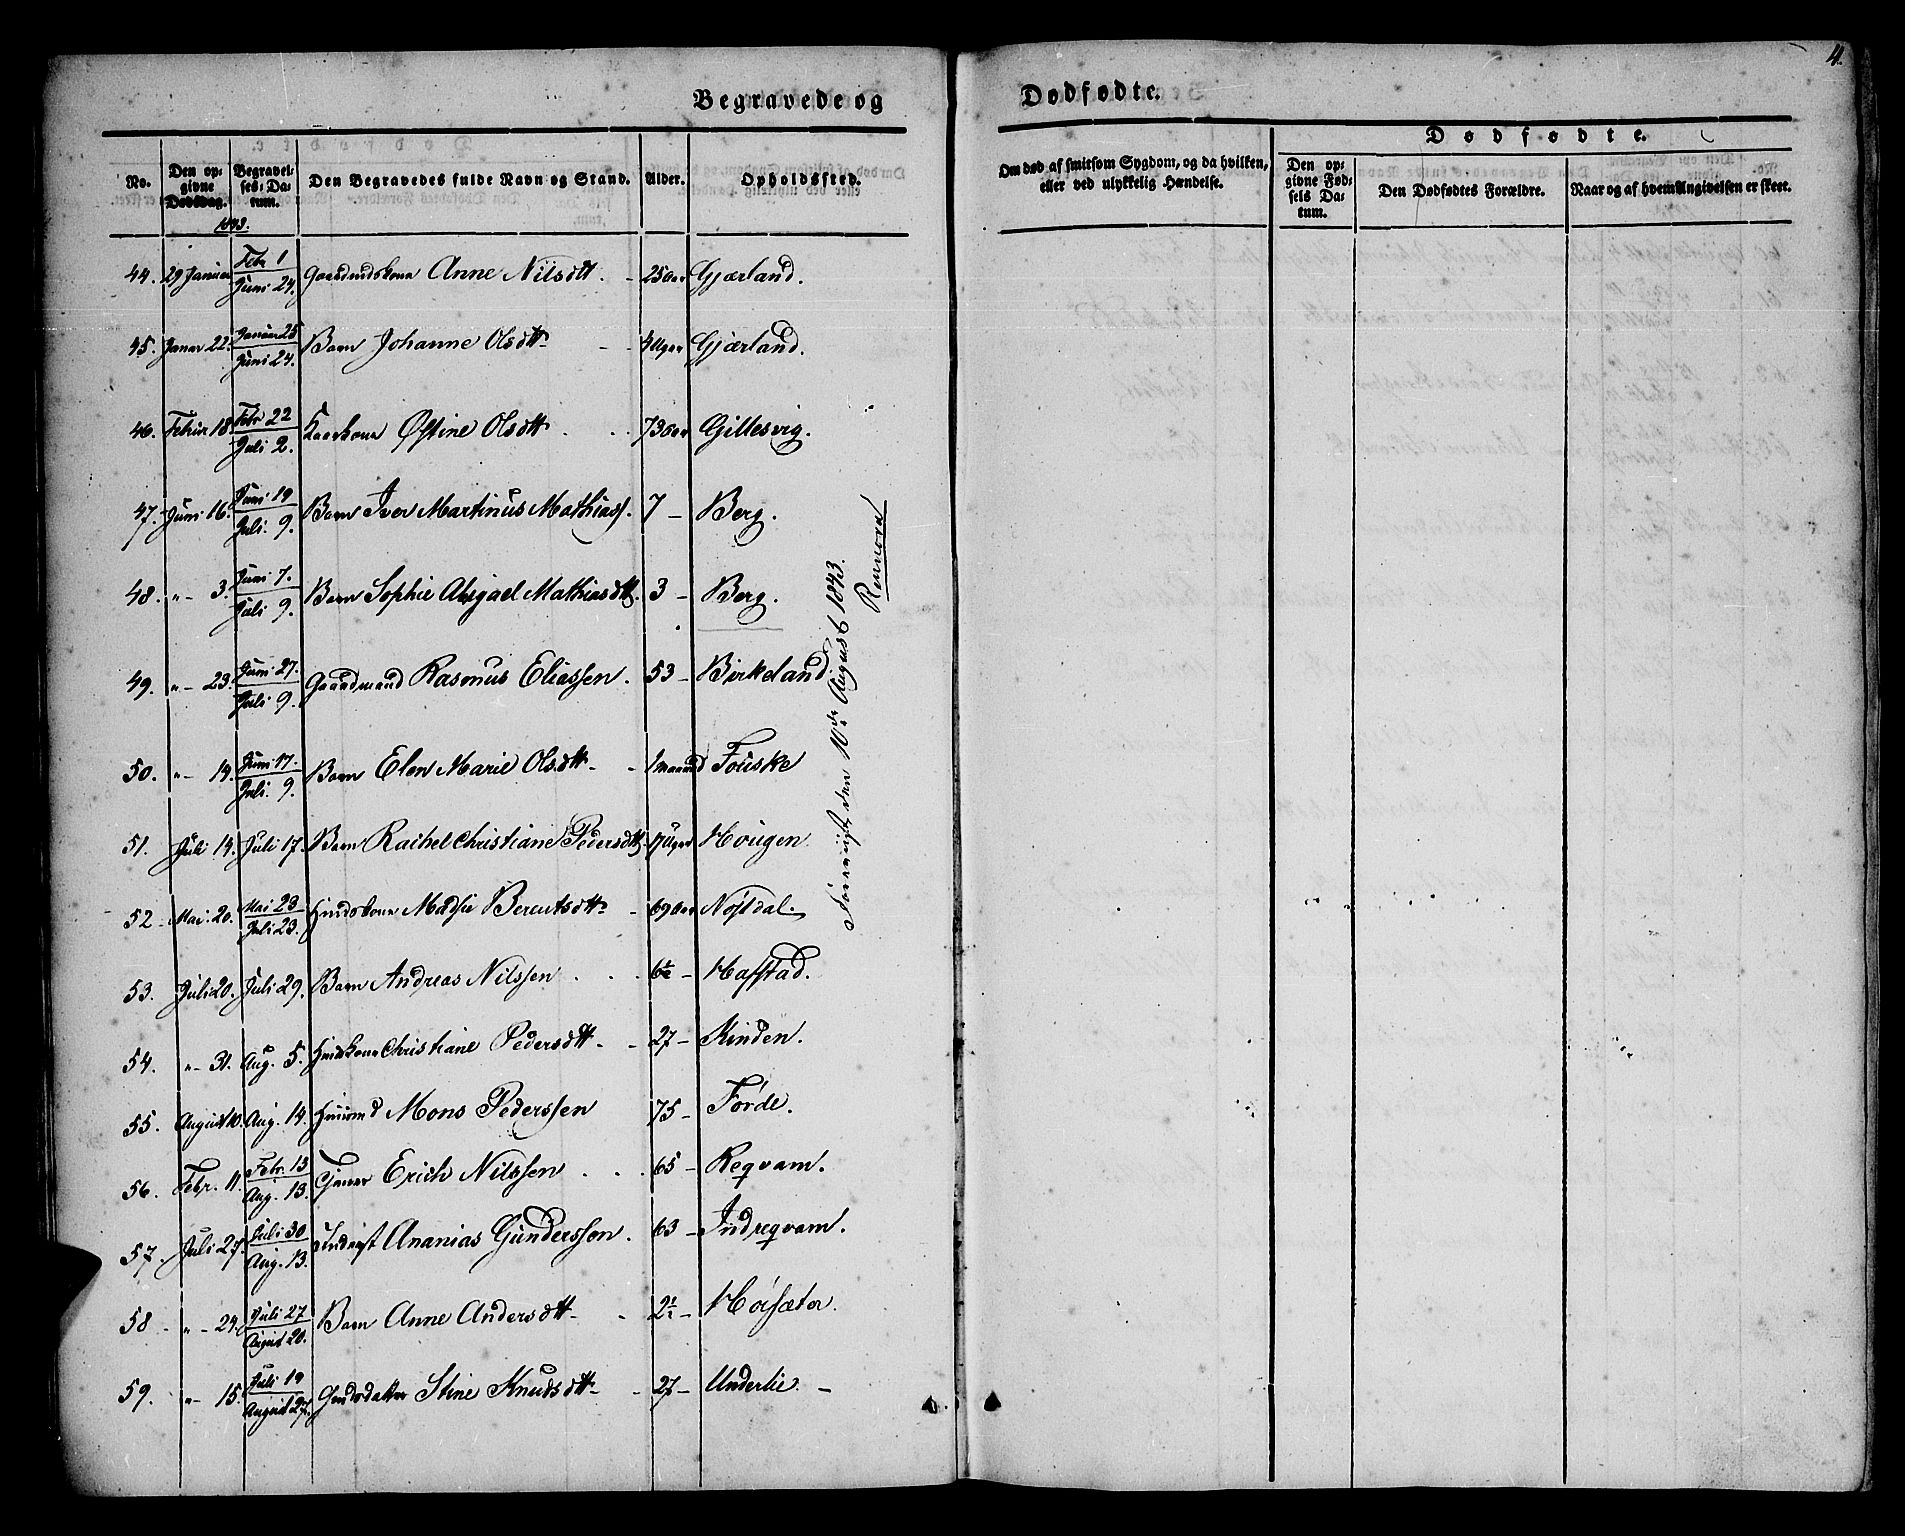 4.
Begravede og Dødfødte.
No. Den opgivne Dødsdag. Begravelses-Datum. Den Begravedes fulde Navn og Stand. Alder. Opholdssted.
Om død af smitsom Sygdom, og da hvilken, eller ved ulykkelig Hændelse.
Dødfødte.
Den opgivne Fødsels Datum. Den Dødfødtes Forældre. Naar og af hvem Angivelsen er skeet.
1843.
44. 29 Januar Febr 1 Juni 24. Gaardmdskone Anne Nilsdtt. - 25 Aar Gjærland.
45. Janar 22. Januar 25 Juni 24. Barn Johanne Olsdtt - - 4 Uger Gjærland.
46. Februar 18 Febr 22 Juli 2. Kaarkone Østine Olsdtt . . . 73 Aar Gillesvig.
47. Juni 16. Juni 19 Juli. 9. Barn Iver Martinus Mathiass. 7 - Berg.
48. "- 3. Juni 7. Juli 9. Barn Sophie Abigael Mathiasdtt. 3 - Berg.
49. "- 23. Juni 27. Juli 9. Gaardmand Rasmus Eliassen. 53 - Birkeland
50. "- 14. Juni 17. Juli. 9. Barn Elen Marie Olsdtt - - 1 maaned Fouske
51. Juli 14. Juli 17. Barn Rachel Christiane Pedersdtt 17 Uger Hougen.
52 - Mai. 20. Mai 23 Juli 23. Huuskone Madsie Berentsdtt - 69 Aar Nøstdal.
53. Juli 20. Juli 29. Barn Andreas Nilssen . . . 6½ - Hafstad.
54. "- 31. Aug. 5. Huuskone Christiane Pedersdtt - - 27 - Kinden.
55. August 10. Aug. 14. Huusmd Mons Pederssen 75 - Førde.
56. Febr. 11. Febr. 13 Aug. 13. Tjener Erich Nilssen . . . 65 - Reqvam.
57. Juli 27. Juli 30 Aug. 13. Inderst Ananias Gunderssen. 63 - Indreqvam.
58 - "- 24. Juli 27 August 20. Barn Anne Andersdtt - - 2½ - Høisæter.
59. "- 15. Juli 19 August 27. Stine Knudsdtt - - 27 - Underlie. -
den 10de August 1843.
Rennord